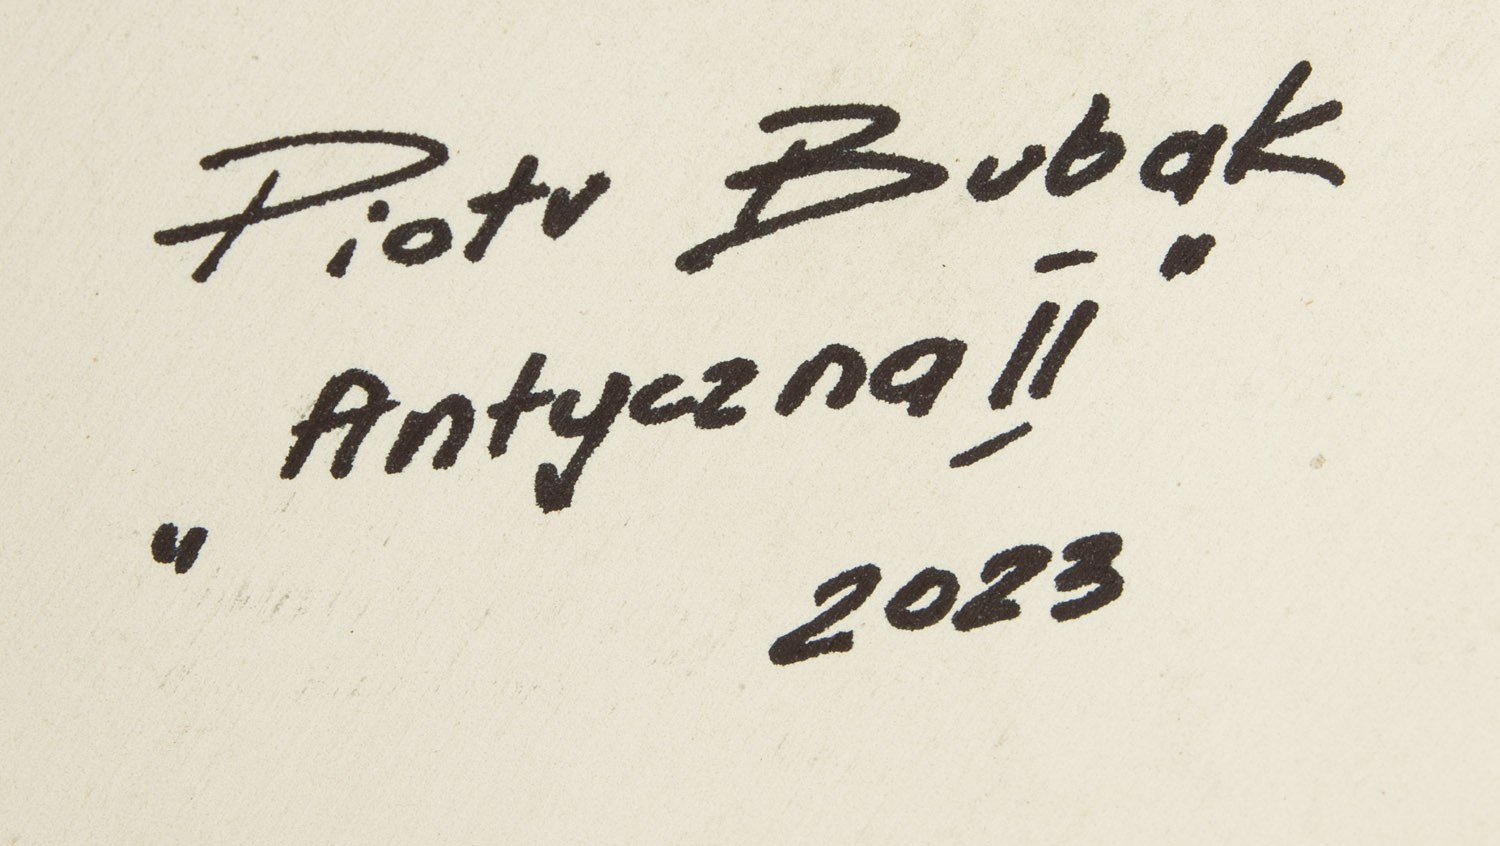 Piotr Bubak
„Antyczna II”
2023